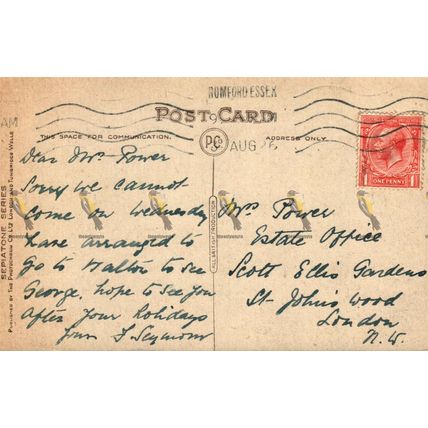 ROMFORD ESSEX
AM
POST CARD
THIS SPACE FOR COMMUNICATION.
ADDRESS ONLY.
AUG 26
ONE PENNY
Dear Mrs Power
Sorry we cannot
Come on Wednesday
have arranged to
go to Halton to see
George. hope to see you
After your holidays
Yours F Seymour
Mrs Power
Estate Office
Scott Ellis Gardens
St Johns wood
London
N.W.
SEPIATONE SERIES
PUBLISHED BY THE PHOTOCHROM CO. LTD. LONDON AND TUNBRIDGE WELLS
ALL BRITISH PRODUCTION